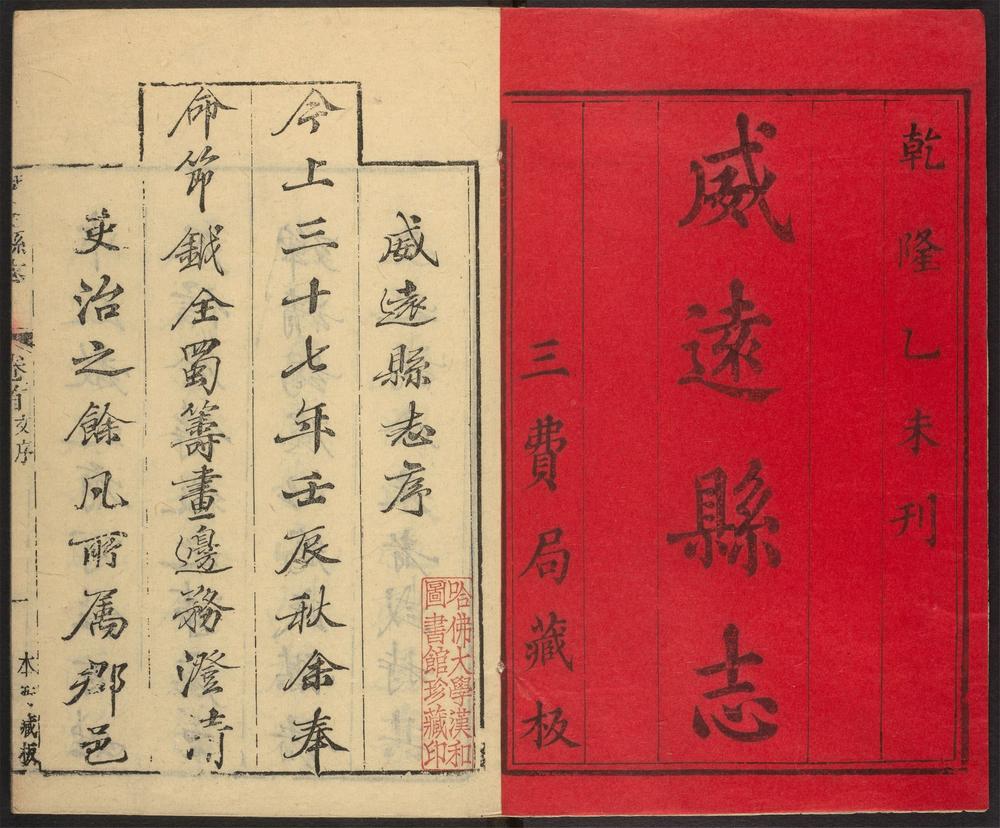 乾隆乙未刊
威遠縣志
三費局藏板
威遠縣志序
今上三十七年壬辰秋余奉
命節鉞全蜀籌畫邊務澄清
吏治之餘凡所属郡邑
哈佛大學漢和
圖書館珍藏印
卷首
序
一
藏板